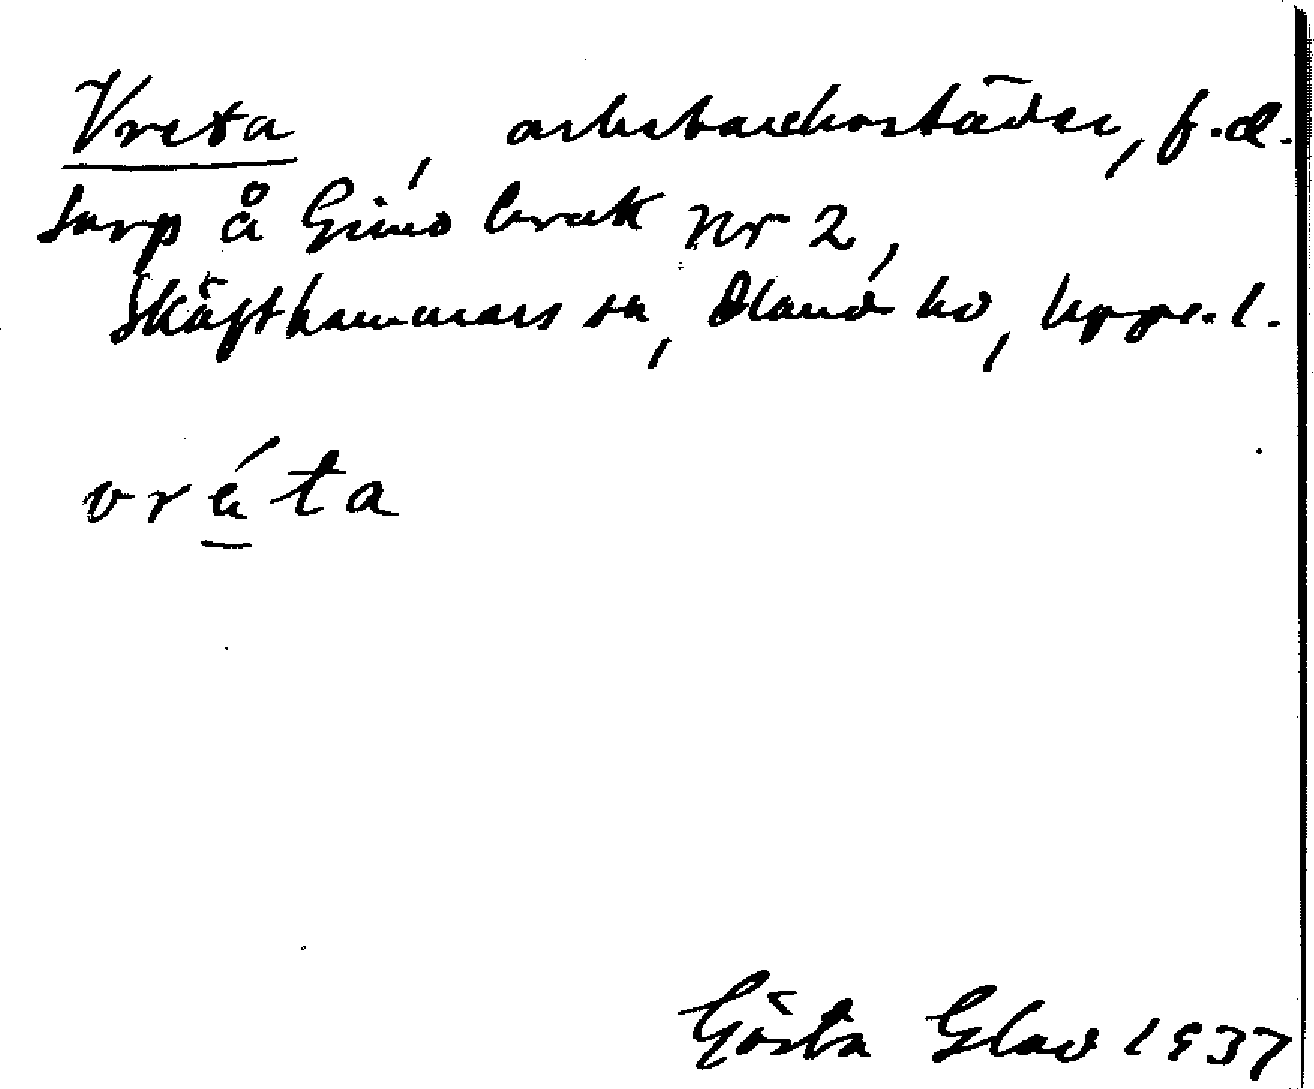 Vreta, arbetarebostäder, f.d.
torp å Gimo bruk Nr 2,
Skäfthammars sn, Olands hd, Upps. l.
vrę́ta
Gösta Glad 1937